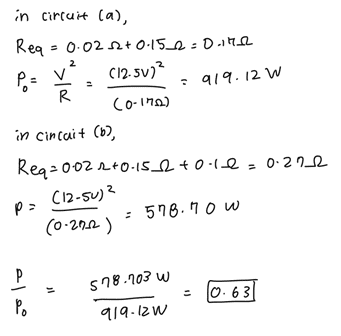 in circuit (a),
Req = 0.02 Ω + 0.15 Ω = 0.17Ω
P₀ = V²/R = (12.5V)²/(0.17Ω) = 919.12 W
in circuit (b),
Req = 0.02 Ω + 0.15 Ω + 0.1 Ω = 0.27 Ω
P = (12.5V)²/(0.27Ω) = 578.70 W
P/P₀ = 578.703 W/919.12W = 0.63